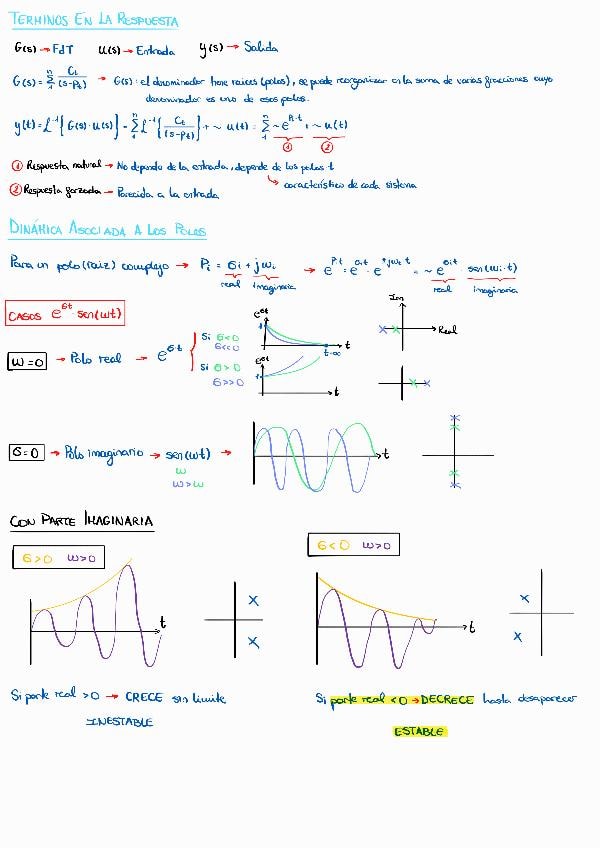 TERMINOS EN LA RESPUESTA
G(s) → FdT   U(s) → Entrada   y(s) → Salida
G(s) = Σ₁ⁿ Cᵢ/(s-pᵢ) → G(s): el denominador tiene raíces (polos), se puede reorganizar en la suma de varias fracciones cuyo
denominador es uno de esos polos.
y(t) = L⁻¹{G(s)·u(s)} = Σ₁ⁿ L⁻¹{Cᵢ/(s-pᵢ)} + ~ u(t) = Σ₁ⁿ ~e^(pᵢ·t) + ~ u(t)
① ②
① Respuesta natural → No depende de la entrada, depende de los polos t
↳ característico de cada sistema
② Respuesta forzada → Parecida a la entrada
DINÁMICA ASOCIADA A LOS POLOS
Para un polo (raíz) complejo → Pᵢ = σᵢ + jωᵢ → e^(pᵢt) = e^(σᵢt) · e^(+jωᵢt) = ~ e^(σᵢt) sen(ωᵢ·t)
real imaginaria real imaginaria
CASOS e^(σt)·sen(ωt)
Im
Real
ω=0 → Polo real → e^(σt)
Si σ<0
σ<<0
Si σ>0
σ>>0
e^(σt)
1
t→∞
t
e^(σt)
1
t
σ=0 → Polo imaginario → sen(ωt) →
ω
ω>ω
t
CON PARTE IMAGINARIA
σ>0 ω>0
t
σ<0 ω>0
t
Si parte real >0 → CRECE sin límite
INESTABLE
Si parte real <0 → DECRECE hasta desaparecer
ESTABLE